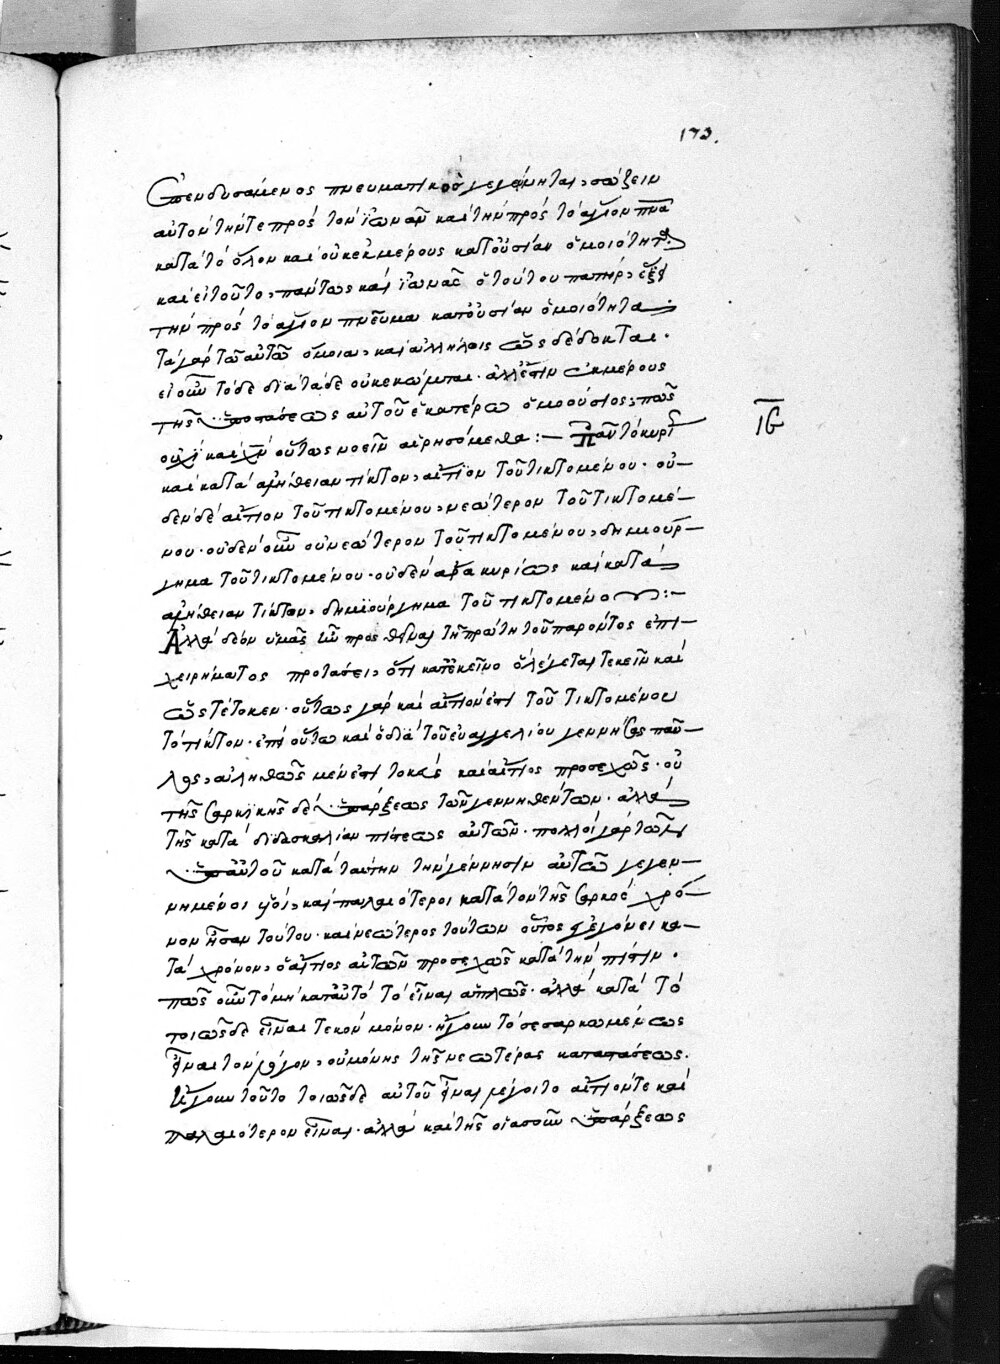 173.
ἐπενδυσάμενος πνευματικὸς γεγένηται, σώζειν
αὐτὸν τήν τε πρὸς τὸν ἰωνᾶν καὶ τὴν πρὸς τὸ ἅγιον πνα
κατὰ τὸ ὅλον καὶ οὐκ ἐκ μέρους κατ' οὐσίαν ὁμοιότητα
καὶ εἰ τοῦτο, πάντως καὶ ἰωνᾶς ὁ τούτου πατὴρ, ἕξει
τὴν πρὸς τὸ ἅγιον πνεῦμα κατ' οὐσίαν ὁμοιότητα
τὰ γὰρ τῶ αὐτῶ ὅμοια, καὶ ἀλλήλοις ὡς δέδοται.
εἰ οὖν τόδε διὰ τάδε οὐκ ἐκεῖ ἀλλ' ἔστιν ἐκ μέρους
τῆς ὑποστάσεως αὐτοῦ ἑκατέρω ὁμοούσιος, πῶς
οὐχὶ καὶ χν οὕτως νοεῖν αἱρησόμεθα :— Πᾶν τὸ κυρί
ιϛ
καὶ κατὰ ἀλήθειαν τίκτον, αἴτιον τοῦ τικτομένου. οὐ-
δὲν δὲ αἴτιον τοῦ τικτομένου, νεώτερον τοῦ τικτομέ-
νου. οὐδὲν οὖν οὐ νεώτερον τοῦ τικτομένου, δημιούρ-
γημα τοῦ τικτομένου. οὐδὲν ἄρα κυρίως καὶ κατὰ
ἀλήθειαν τίκτον, δημιούργημα τοῦ τικτομένου :—
Ἀλλὰ δέον ὑμᾶς προσθεῖναι τῇ πρώτῃ τοῦ παρόντος ἐπι-
χειρήματος προτάσει, ὅτι κατ' ἐκεῖνο ὃ λέγεται τεκεῖν καὶ
ὡς τέτοκεν. οὕτως γὰρ καὶ αἴτιόν ἐστι τοῦ τικτομένου
τὸ τίκτον. ἐπεὶ οὕτω καὶ ὁ διὰ τοῦ εὐαγγελίου γεννήσας παῦ-
λος, ἀληθῶς μέν ἐστι τοκεὺς καὶ αἴτιος προσεχῶς. οὐ
τῆς σαρκικῆς δὲ ὑπάρξεως τῶν γεννηθέντων. ἀλλὰ
τῆς κατὰ διδασκαλίαν πίστεως αὐτῶν. πολλοὶ γὰρ τῶν
ὑπ' αὐτοῦ κατὰ ταύτην τὴν γέννησιν αὐτῶ γεγεν-
νημένοι υἱοὶ, καὶ παλαιότεροι κατὰ τὸν τῆς σαρκὸς χρό-
νον ἦσαν τούτου. καὶ νεώτερος τούτων οὗτος ἐγεγόνει κα-
τὰ χρόνον, ὁ αἴτιος αὐτῶν προσεχῶς κατὰ τὴν πίστιν.
πῶς οὖν τὸ μὴ κατ' αὐτὸ τὸ εἶναι ἁπλῶς. ἀλλὰ κατὰ τὸ
τοιῶσδε εἶναι τεκὸν μόνον. ἤγουν τὸ σεσαρκωμένως
εἶναι τὸν λόγον, οὐ μόνης τῆς νεωτέρας καταστάσεως.
ἤγουν τοῦτο τοιῶσδε αὐτοῦ εἶναι γένοιτο αἴτιόν τε καὶ
παλαιότερον εἶναι. ἀλλὰ καὶ τῆς οἱασοῦν ὑπάρξεως